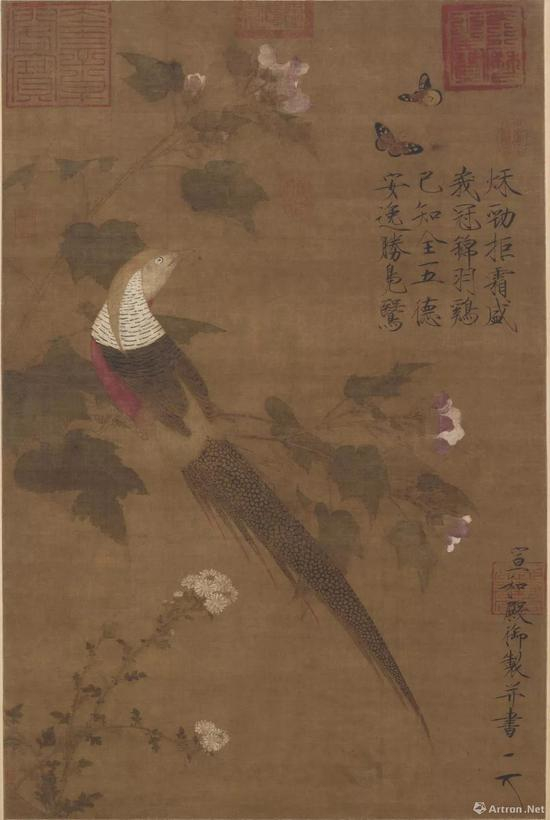 秋勁拒霜盛
峩冠錦羽鷄
已知全五德
安逸勝鳧鷖
宣和殿御製并書
Artron.Net